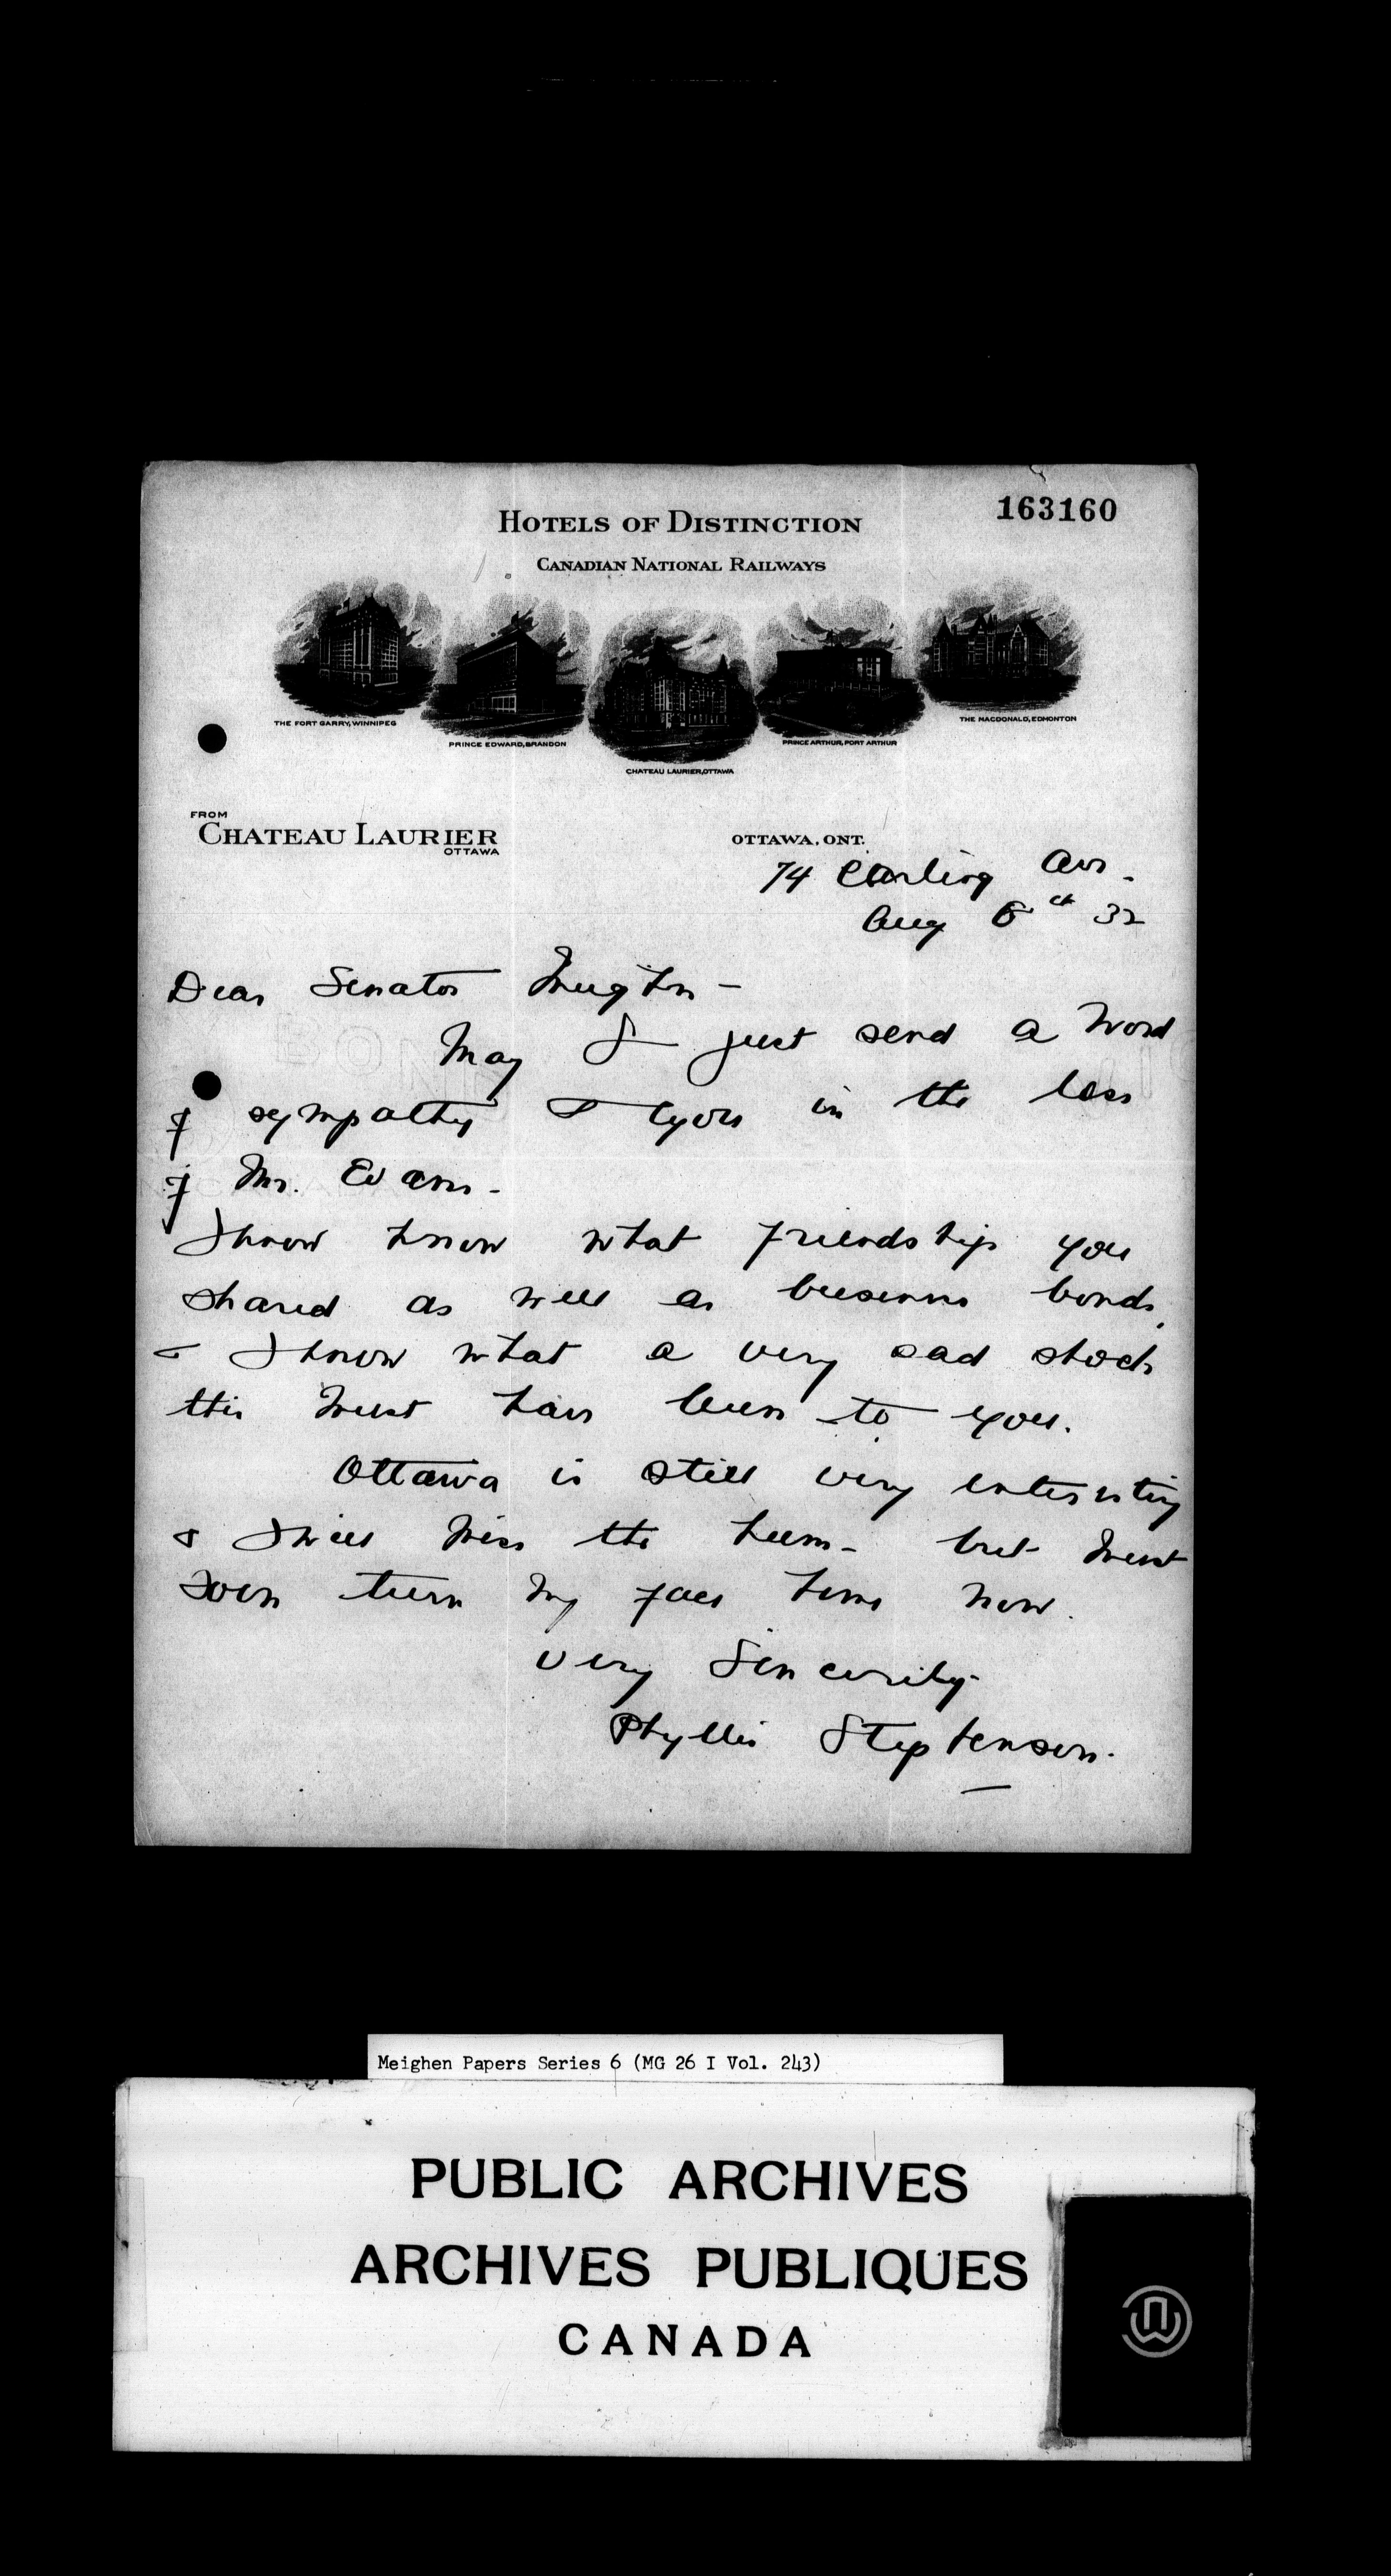 163160
HOTELS OF DISTINCTION
CANADIAN NATIONAL RAILWAYS
THE FORT GARRY, WINNIPEG
PRINCE EDWARD, BRANDON
CHATEAU LAURIER, OTTAWA
PRINCE ARTHUR, PORT ARTHUR
THE MACDONALD, EDMONTON
FROM
CHATEAU LAURIER
OTTAWA
OTTAWA, ONT.
74 Carling Ave.
Aug 8th 32
Dear Senator Meighen -
May I just send a word
of sympathy to you in the loss
of Mr. Evans -
I know know what friendship you
shared as well as business bonds,
& I know what a very sad shock
this must have been to you.
Ottawa is still very interesting
& I will miss the hum - but must
soon turn my face home now.
Very Sincerely
Phyllis Stephenson.
Meighen Papers Series 6 (MG 26 I Vol. 243)
PUBLIC ARCHIVES
ARCHIVES PUBLIQUES
CANADA